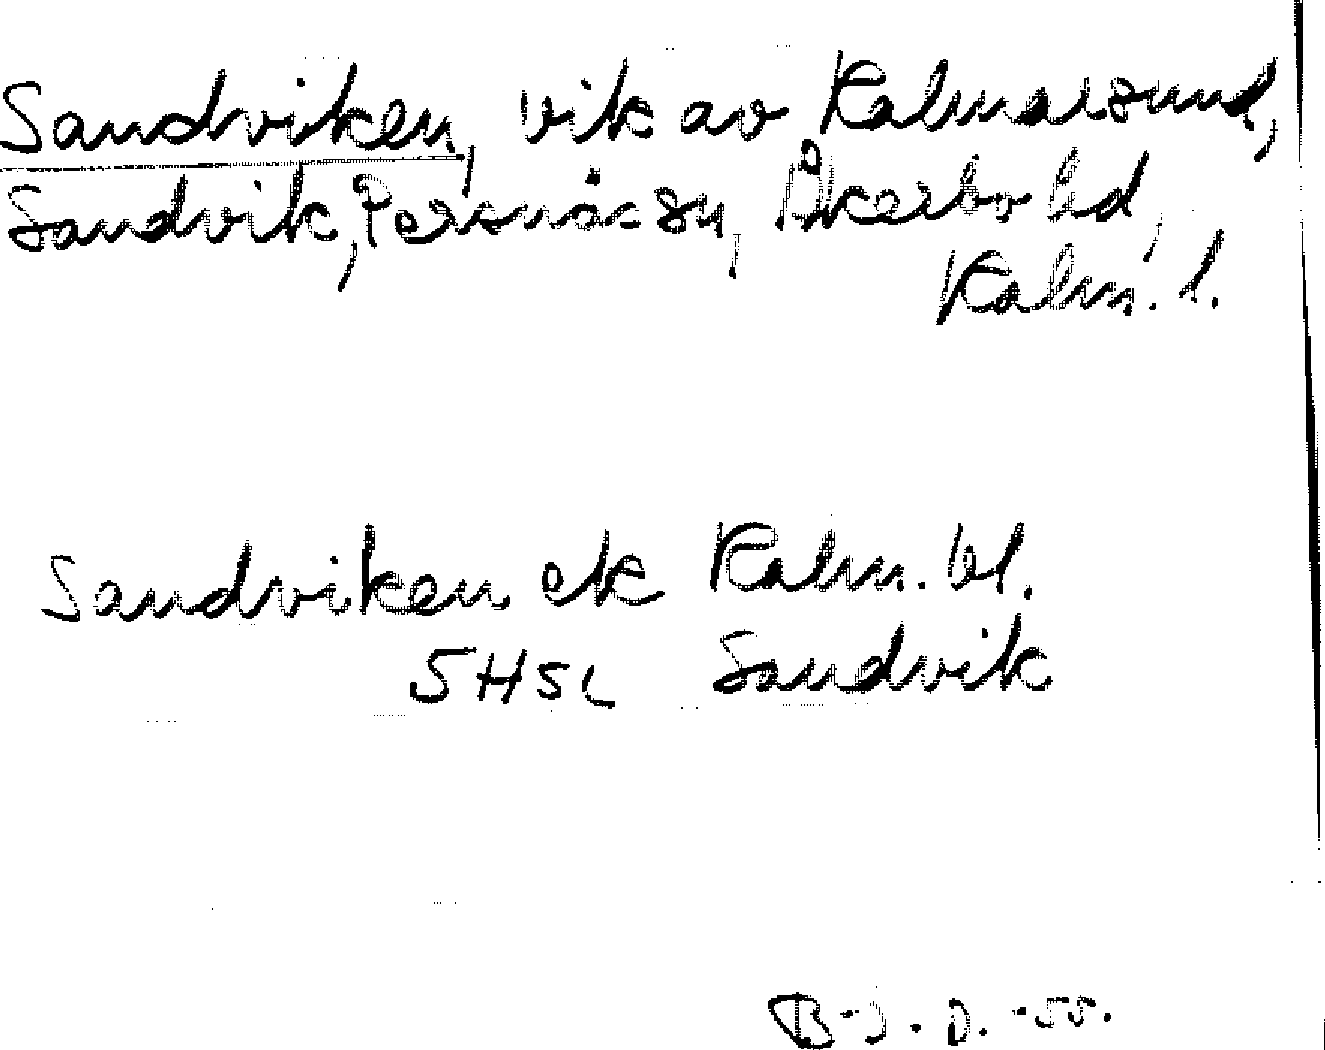 Sandviken, vik av Kalmarsund,
Sandvik, Persnäs sn, Åkerbo hd,
Kalm. l.
Sandviken ek Kalm. bl.
5H5c Sandvik
B-J. D. -55.